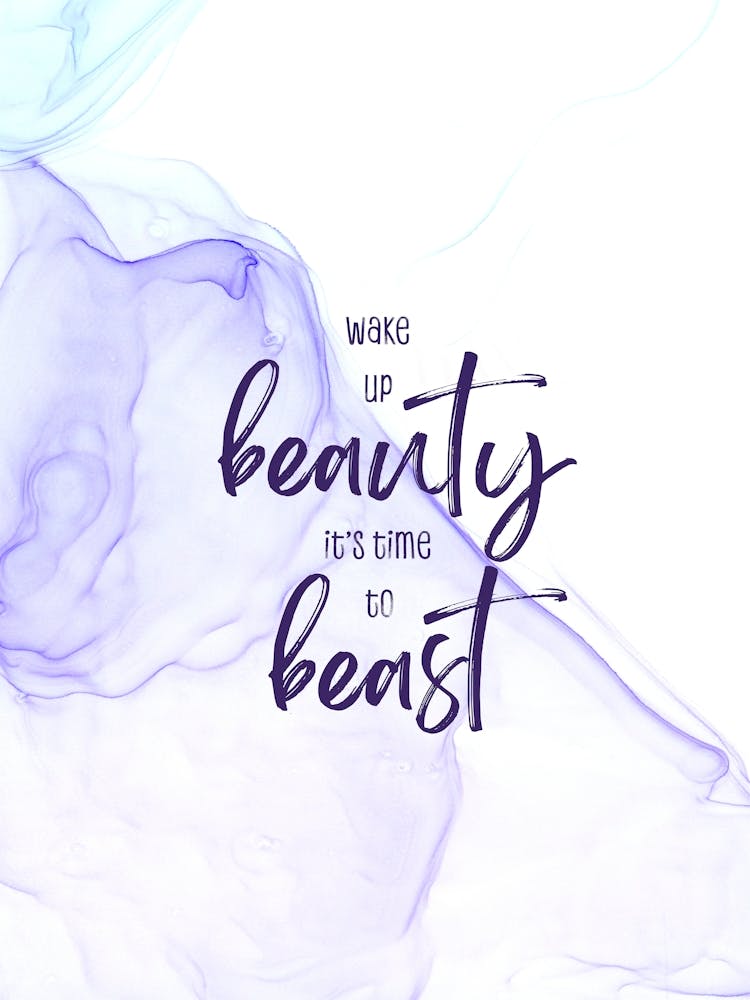 wake
up
beauty
it's time
to
beast